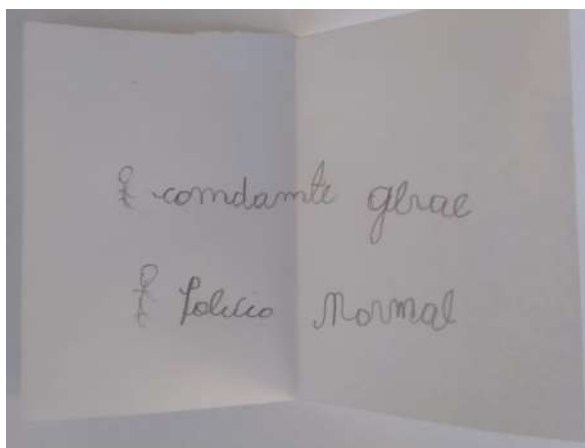 comdamte gerae
Policio Normal